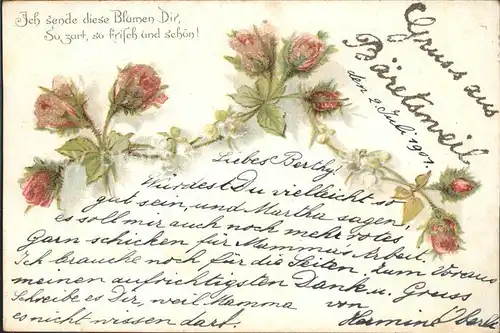 Ich sende diese Blumen Dir,
So zart, so frisch und schön!
Gruss aus
Bäretsweil
den 2. Juli 1901.
Liebes Berthy!
Würdest Du vielleicht so
gut sein, und Martha sagen,
es soll mir auch noch mehr rotes
Garn schicken für Mamma's Arbeit.
Ich brauche noch für die Seiten. Zum voraus
meinen aufrichtigsten Dank u. Gruss
Schreibe es Dir, weil Mamma von
es nicht wissen darf. Hermine